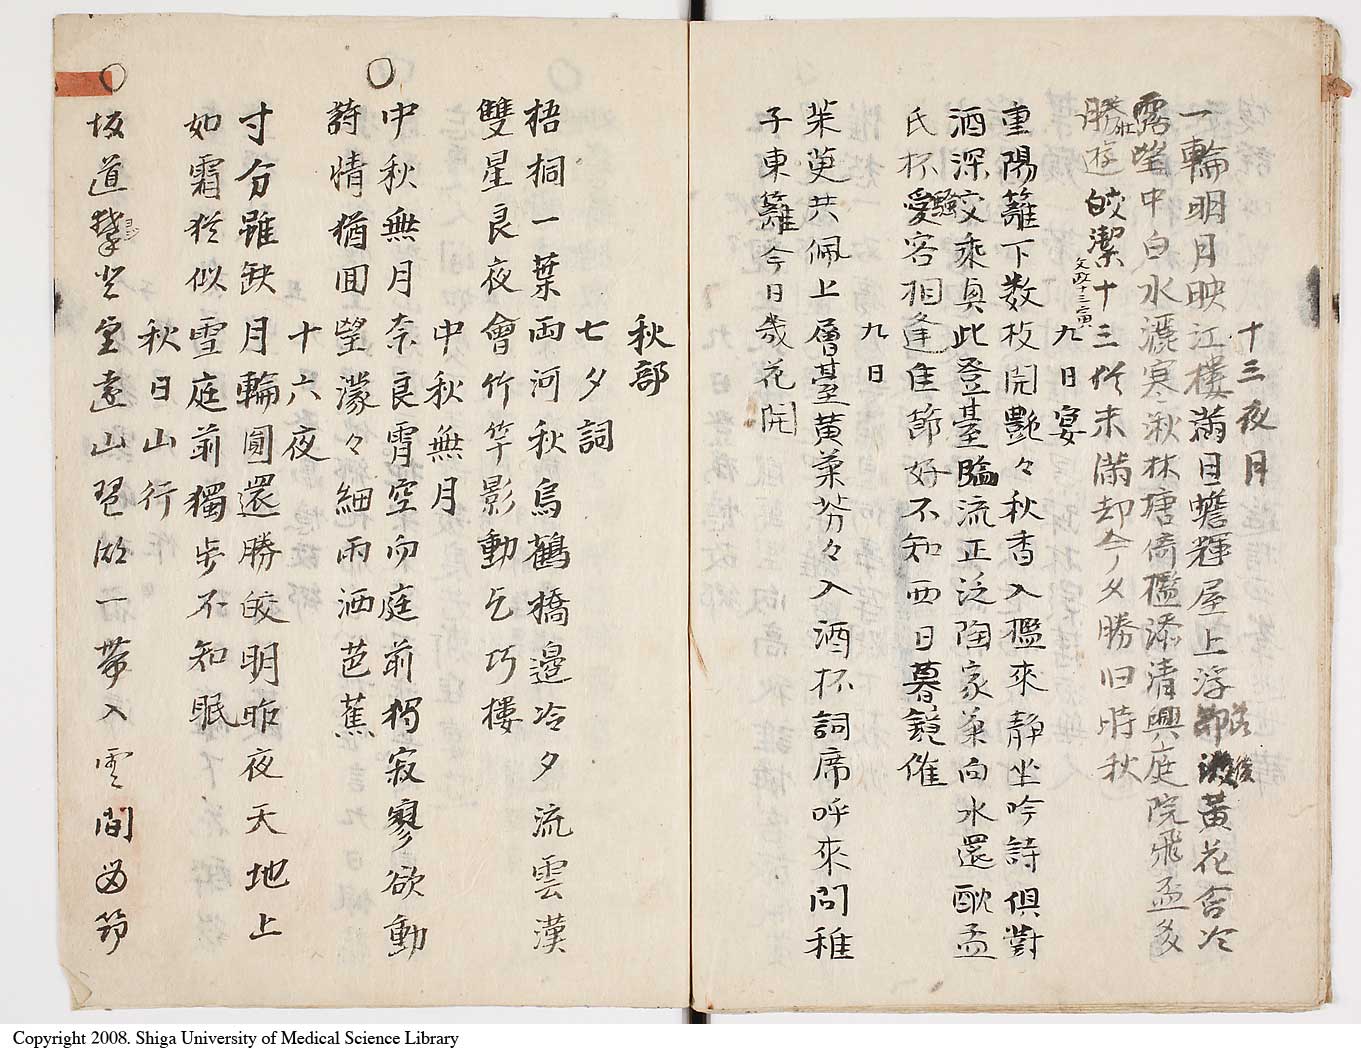 十三夜月
一輪明月映江樓滿目蟾輝屋上浮黃花含冷
露螢中白水灑寒湫林塘倚檻添清興庭院飛盃多
勝遊皎潔十三終未滿却今夕勝旧時秋
文政十三寅
九日宴
重陽籬下数枚開艶々秋香入檻來静坐吟詩俱對
酒深交乘眞此登臺臨流正泛陶家菊向水還酖孟
氏杯愛客相逢佳節好不知西日暮鏡催
九日
茱萸共佩上層臺黄菊芬々入酒杯詞席呼來問稚
子東籬今日幾花開
秋部
七夕詞
梧桐一葉両河秋烏鵲橋邉冷夕流雲漢
雙星良夜會竹竿影動乞巧樓
中秋無月
中秋無月奈良霄空向庭前独寂寥欲動
詩情猶囬望濛々細雨洒芭蕉
十六夜
寸分雖缺月輪圓還勝皎明昨夜天地上
如霜猶似雪庭前獨步不知眠
秋日山行
坂道攀登望遠山琶湖一帶入雲間